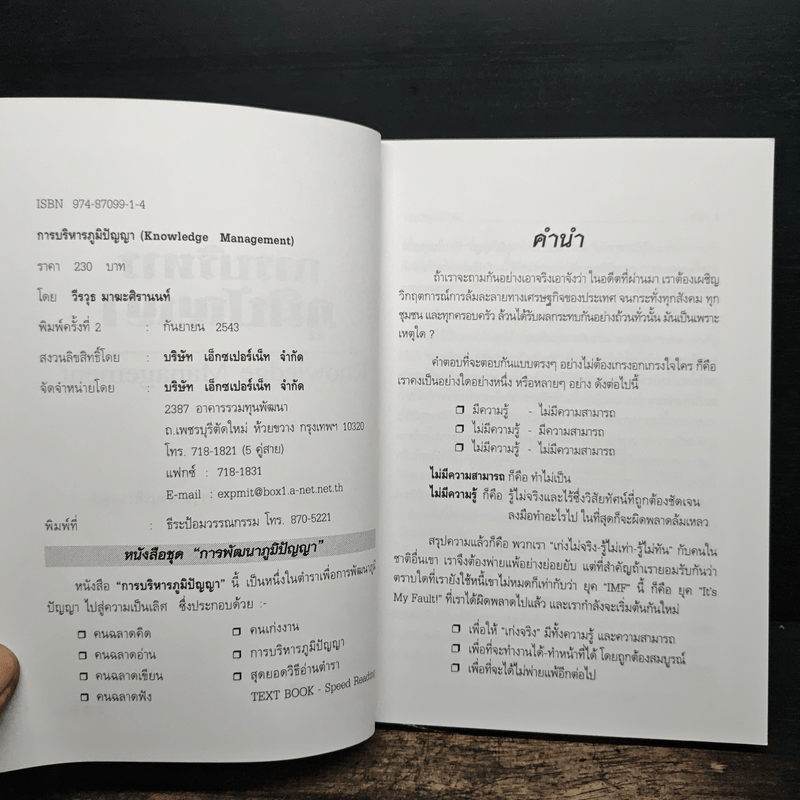 ISBN 974-87099-1-4
การบริหารภูมิปัญญา (Knowledge Management)
ราคา 230 บาท
โดย วีรวุธ มาฆะศิรานนท์
พิมพ์ครั้งที่ 2 : กันยายน 2543
สงวนลิขสิทธิ์โดย : บริษัท เอ็กซเปอร์เน็ท จำกัด
จัดจำหน่ายโดย : บริษัท เอ็กซเปอร์เน็ท จำกัด
2387 อาคารรวมทุนพัฒนา
ถ.เพชรบุรีตัดใหม่ ห้วยขวาง กรุงเทพฯ 10320
โทร. 718-1821 (5 คู่สาย)
แฟกซ์ : 718-1831
E-mail : expmit@box1.a-net.net.th
พิมพ์ที่ : ธีระป้อมวรรณกรรม โทร. 870-5221
หนังสือชุด "การพัฒนาภูมิปัญญา"
หนังสือ "การบริหารภูมิปัญญา" นี้ เป็นหนึ่งในตำราเพื่อการพัฒนาภูมิ
ปัญญา ไปสู่ความเป็นเลิศ ซึ่งประกอบด้วย :-
❒ คนฉลาดคิด
❒ คนฉลาดอ่าน
❒ คนฉลาดเขียน
❒ คนฉลาดฟัง
❒ คนเก่งงาน
❒ การบริหารภูมิปัญญา
❒ สุดยอดวิธีอ่านตำรา
TEXT BOOK - Speed Reading
คำนำ
ถ้าเราจะถามกันอย่างเอาจริงเอาจังว่า ในอดีตที่ผ่านมา เราต้องเผชิญ
วิกฤตการณ์การล้มละลายทางเศรษฐกิจของประเทศ จนกระทั่งทุกสังคม ทุก
ชุมชน และทุกครอบครัว ล้วนได้รับผลกระทบกันอย่างถ้วนทั่วนั้น มันเป็นเพราะ
เหตุใด ?
คำตอบที่จะตอบกันแบบตรงๆ อย่างไม่ต้องเกรงอกเกรงใจใคร ก็คือ
เราคงเป็นอย่างใดอย่างหนึ่ง หรือหลายๆ อย่าง ดังต่อไปนี้
❒ มีความรู้ - ไม่มีความสามารถ
❒ ไม่มีความรู้ - มีความสามารถ
❒ ไม่มีความรู้ - ไม่มีความสามารถ
ไม่มีความสามารถ ก็คือ ทำไม่เป็น
ไม่มีความรู้ ก็คือ รู้ไม่จริงและไร้ซึ่งวิสัยทัศน์ที่ถูกต้องชัดเจน
ลงมือทำอะไรไป ในที่สุดก็จะผิดพลาดล้มเหลว
สรุปความแล้วก็คือ พวกเรา "เก่งไม่จริง-รู้ไม่เท่า-รู้ไม่ทัน" กับคนใน
ชาติอื่นเขา เราจึงต้องพ่ายแพ้อย่างย่อยยับ แต่ที่สำคัญถ้าเรายอมรับกันว่า
ตราบใดที่เรายังใช้หนี้เขาไม่หมดก็เท่ากับว่า ยุค "IMF" นี้ ก็คือ ยุค "It's
My Fault!" ที่เราได้ผิดพลาดไปแล้ว และเรากำลังจะเริ่มต้นกันใหม่
❒ เพื่อให้ "เก่งจริง" มีทั้งความรู้ และความสามารถ
❒ เพื่อที่จะทำงานได้-ทำหน้าที่ได้ โดยถูกต้องสมบูรณ์
❒ เพื่อที่จะได้ไม่พ่ายแพ้อีกต่อไป